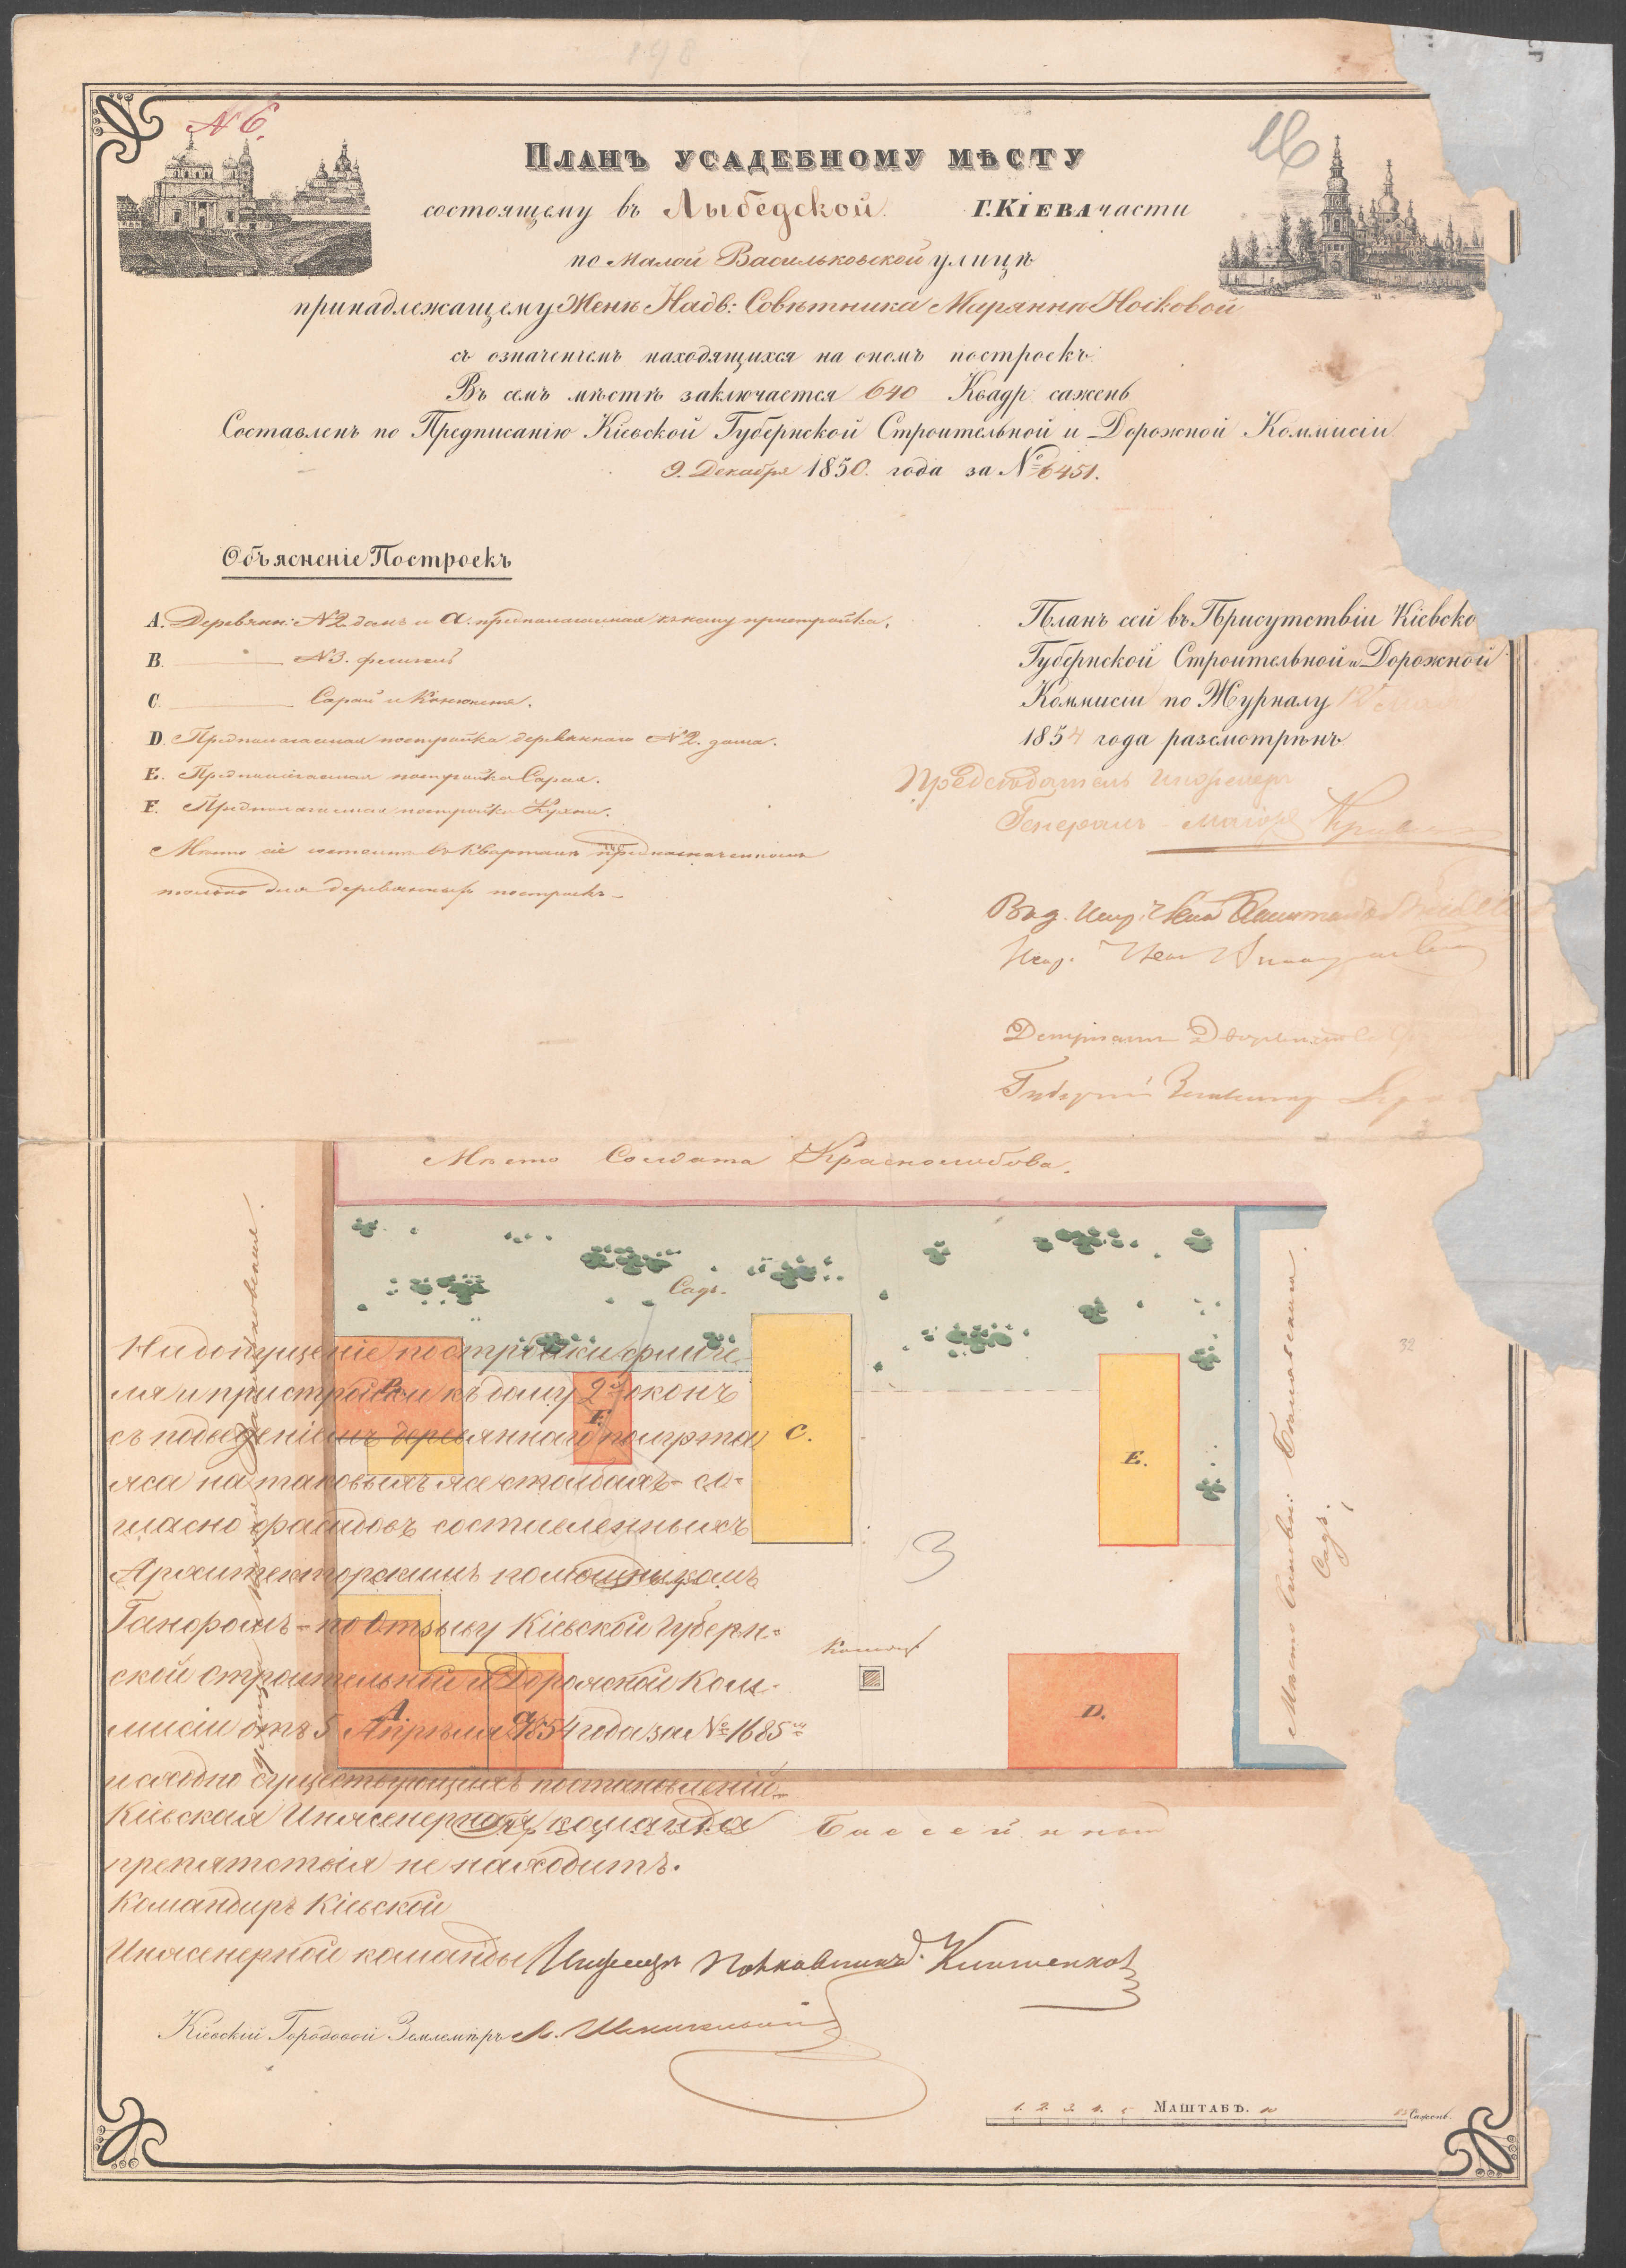 № 6.
16
Планъ усадебному мѣсту
состоящему въ Лыбедской Г. Кіева части
по Малой Васильковской улицѣ
принадлежащему Женѣ Надв: Совѣтника Марянны Носковой
съ означеніемъ находящихся на ономъ построекъ.
Въ семъ мѣстѣ заключается 640 Квадр. сажень
Составленъ по Предписанію Кіевской Губернской Строительной и Дорожной Коммисіи
9. Декабря 1850. года за № 6451.
Объясненіе Построекъ
A. Деревянн: №2. домъ и a. предполагаемая къ нему пристройка.
B. №3. флигель
C. Сарай и Конюшня.
D. Предполагаемая постройка деревяннаго №2. дома.
E. Предполагаемая постройка Сарая.
F. Предполагаемая постройка Кухни.
Мѣсто сіе состоитъ въ Кварталѣ предназначенномъ
только для деревянныхъ построекъ
Планъ сей въ Присутствіи Кіевско
Губернской Строительной и Дорожной
Коммисіи по Журналу 12 Мая
1854 года разсмотрѣнъ
Председатель Инженеръ
Генералъ-Маіоръ
Губернскій Землемѣръ
Мѣсто Солдата Краснолюбова.
Садъ.
B.
F.
C.
E.
3
A.
a.
D.
Мѣсто
Садъ.
32
Улица Малая Васильковская.
Недопущеніе постройки флиге
ля и пристройки къ дому 2хъ оконъ
съ подведеніемъ деревяннаго полуэта
жа на таковыхъ же столбахъ- со-
гласно фасадовъ составленныхъ
Архитекторскимъ помощникомъ
Ганфомъ - по Отзыву Кіевской Губерн-
ской Строительной и Дорожной Ком-
мисіи отъ 5 Апрѣля 1854 года за № 1685
и сходно существующихъ постановленій
Кіевская Инженерная команда
препятствія не находитъ.
Бассейная
Командиръ Кіевской
Инженерной команды Инженеръ Полковникъ
Кіевскій Городовой Землемѣръ
1. 2. 3. 4. 5 Маштабъ. 10 15 Сажень.